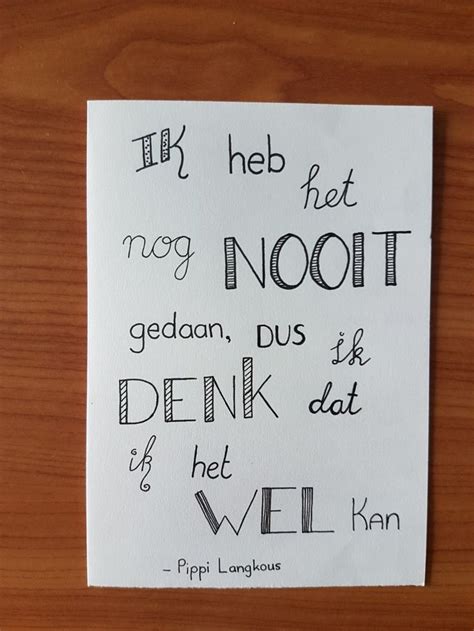 IK heb het
nog NOOIT
gedaan, DUS ik
DENK dat
ik het
WEL kan
- Pippi Langkous